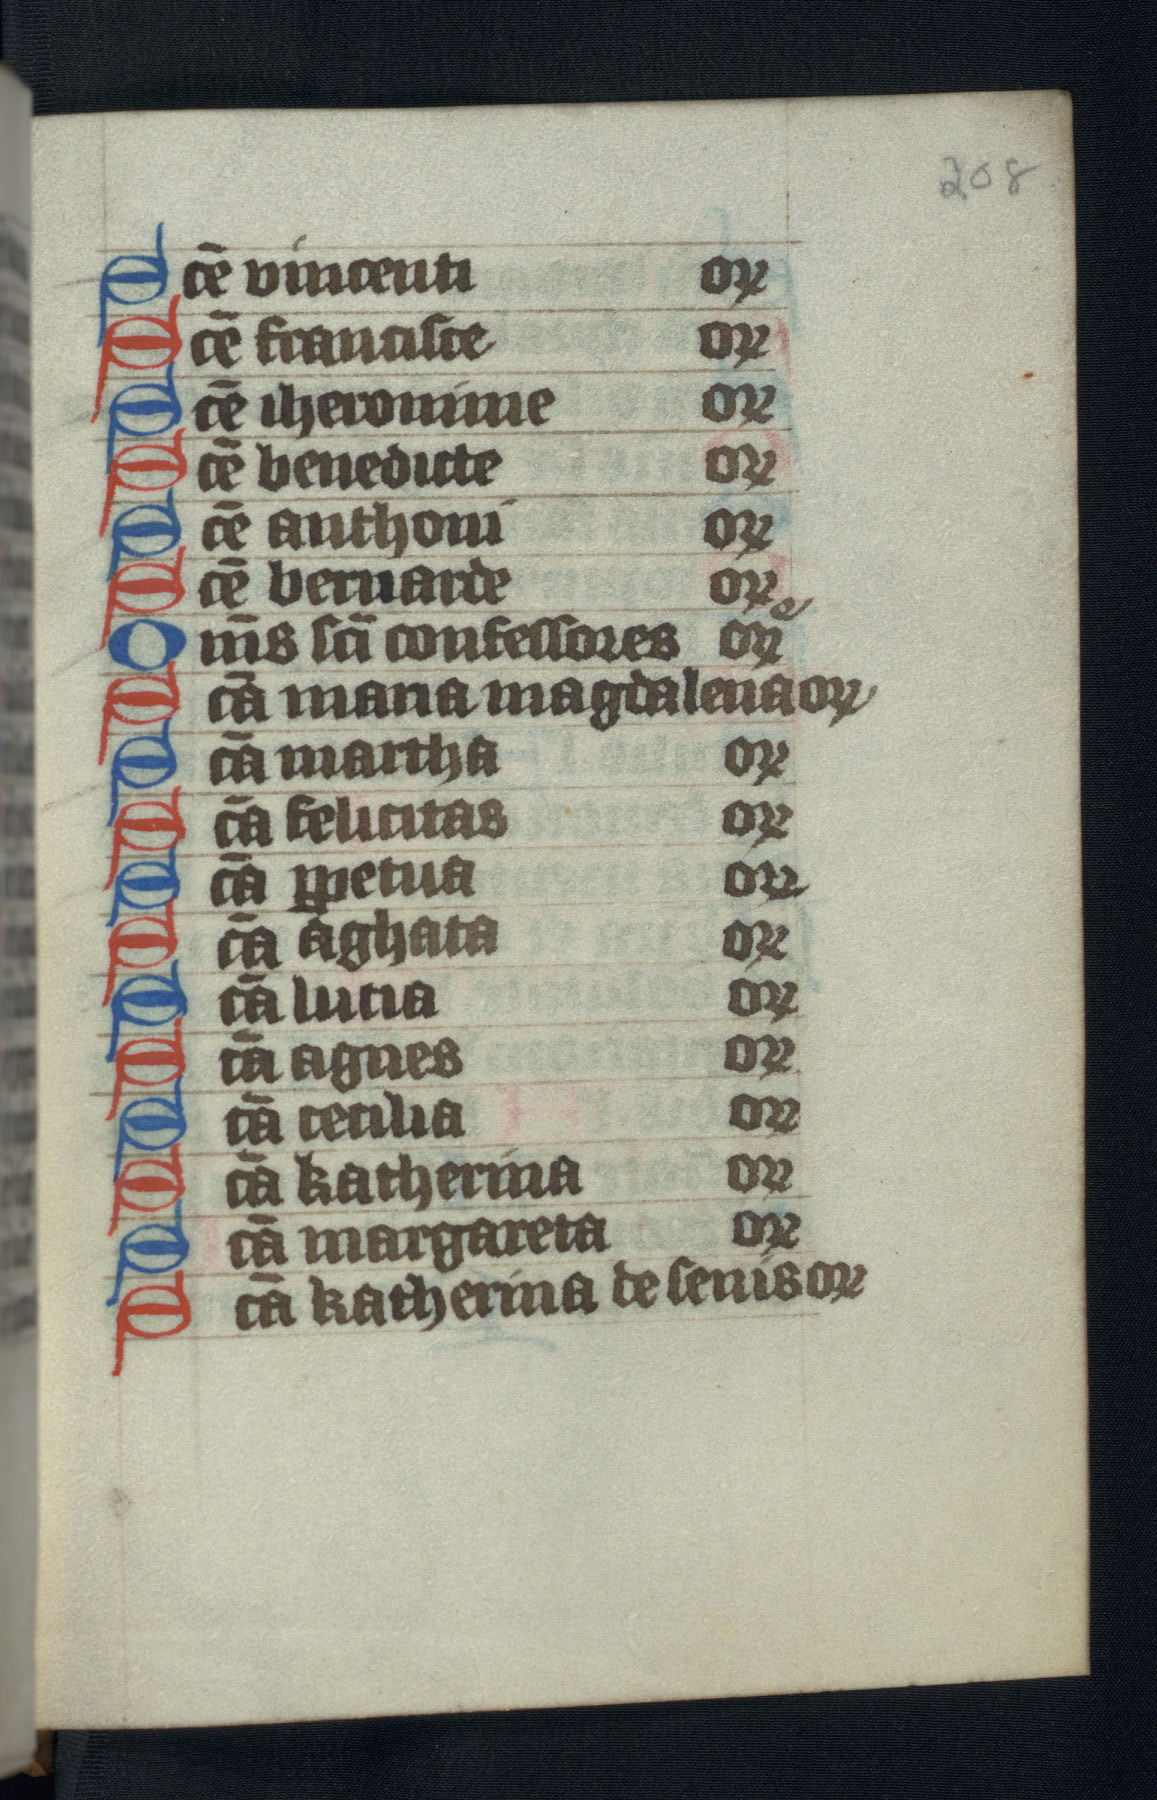 208
Scē vincenti orꝫ
Scē francisce orꝫ
Scē iheronime orꝫ
Scē benedicte orꝫ
Scē anthoni orꝫ
Scē bernarde orꝫ
Om̄s scī confessores orꝫͤ
Scā maria magdalena orꝫ
Scā martha orꝫ
Scā felicitas orꝫ
Scā ꝑpetua orꝫ
Scā aghata orꝫ
Scā lucia orꝫ
Scā agnes orꝫ
Scā cecilia orꝫ
Scā katherina orꝫ
Scā margareta orꝫ
Scā katherina de senis orꝫ